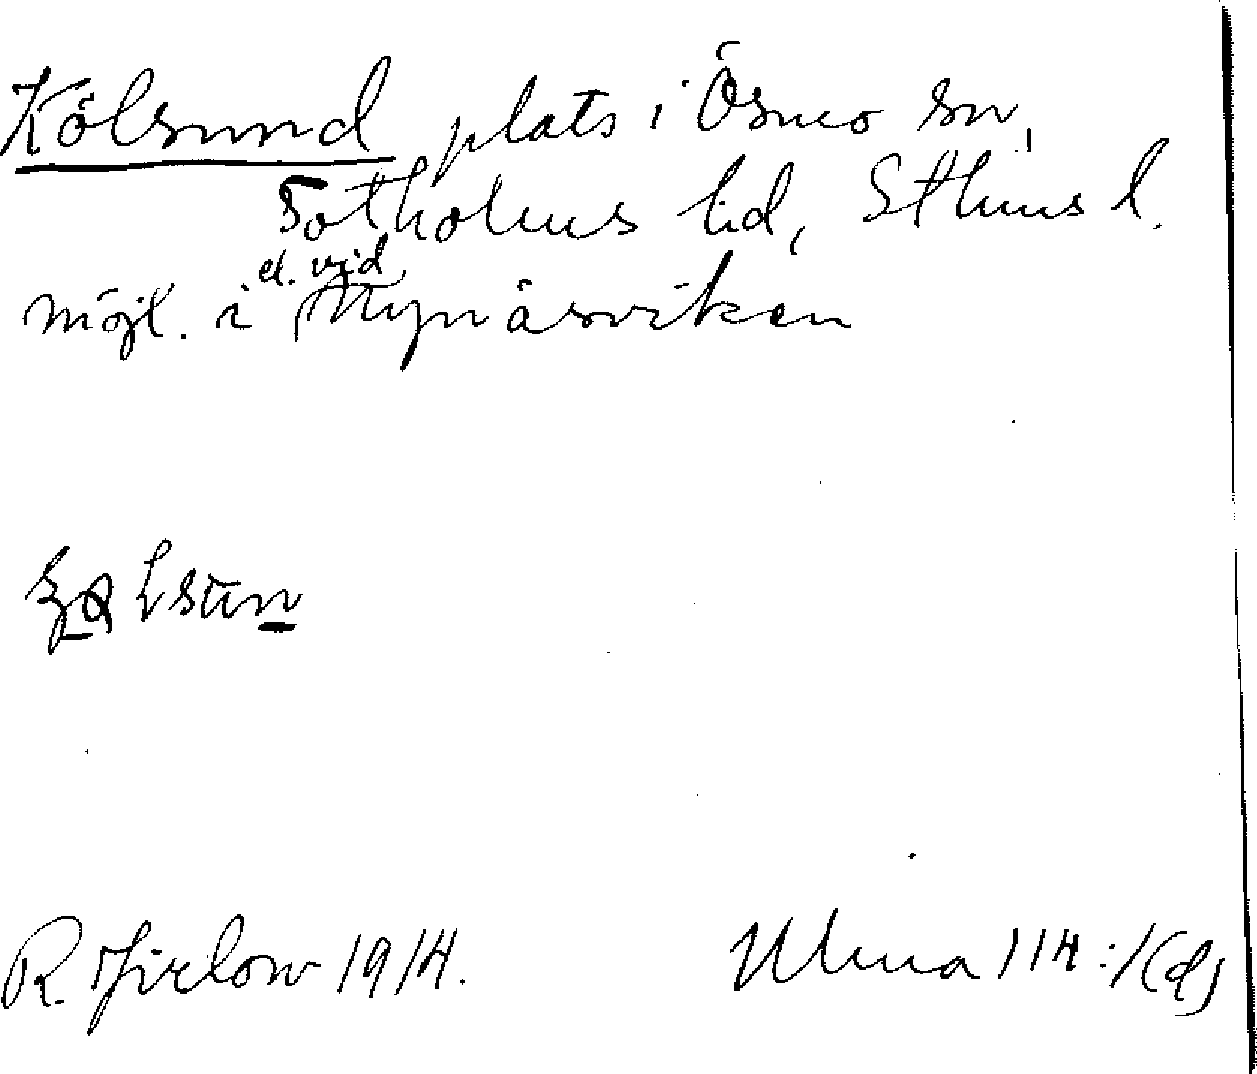 Kölsund plats i Ösmo sn,
Sotholms hd, Sthms l.
möjl. i el. vid Nynäsviken
R. Jirlow 1914. Ulma 114:1(d)